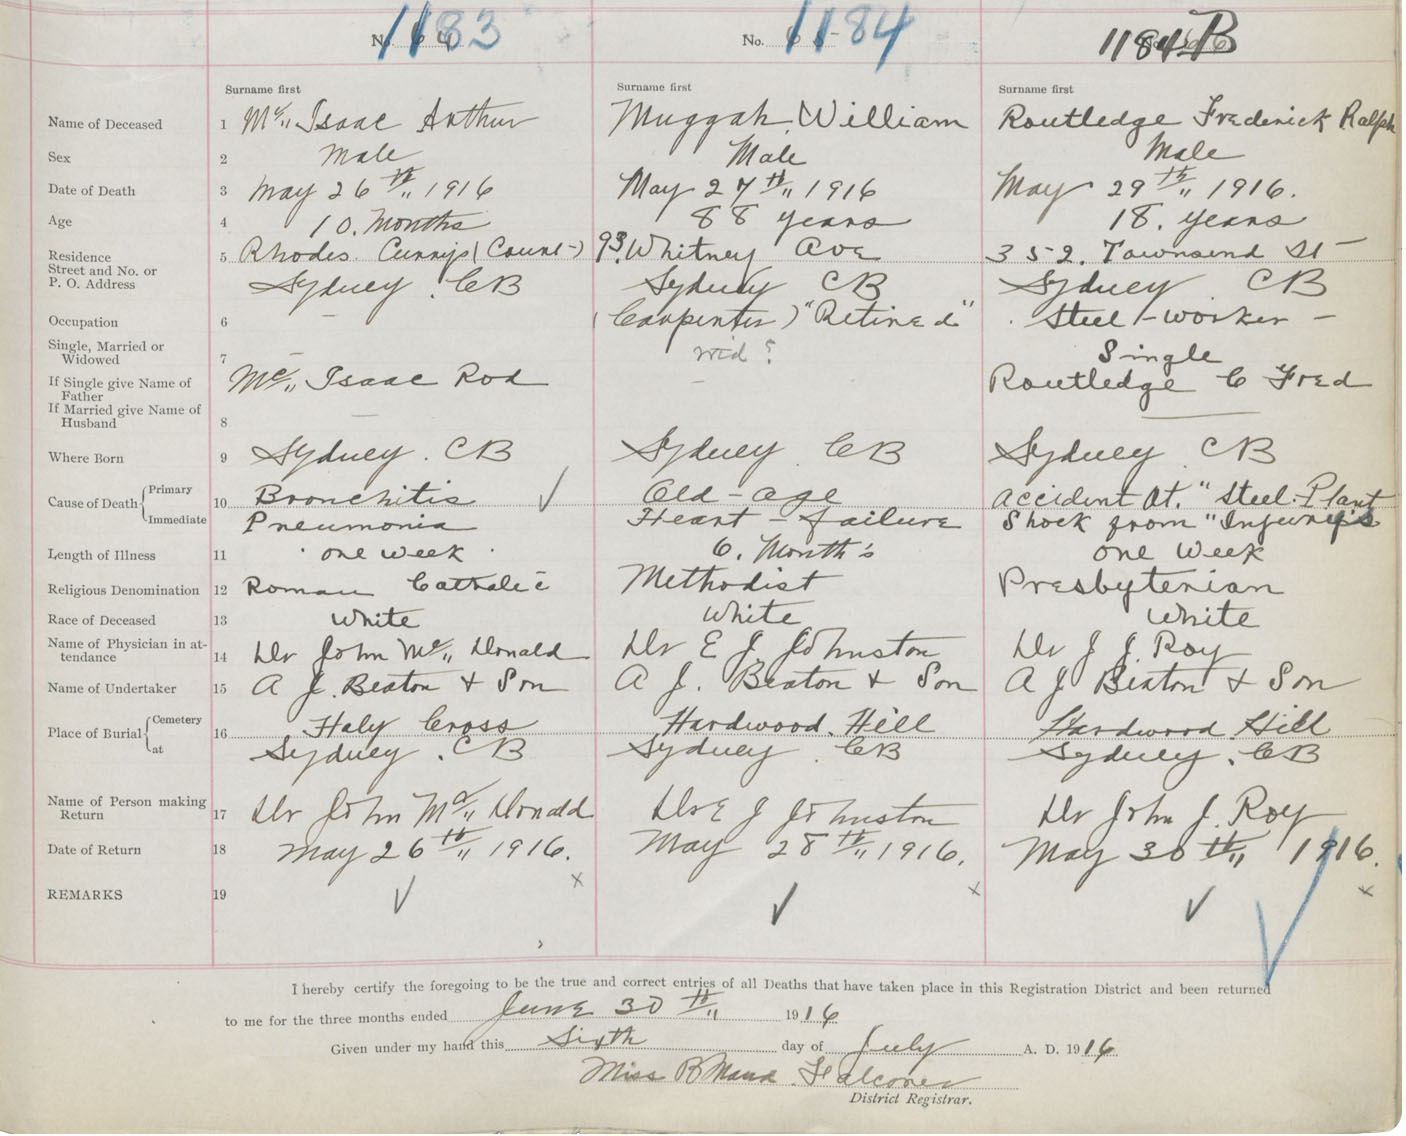 No. 64 1183 No. 65 1184 1184 B
Surname first Surname first Surname first
Name of Deceased 1 Mc,, Isaac Arthur Muggah William Routledge Frederick Ralph
Sex 2 Male Male Male
Date of Death 3 May 26th,, 1916 May 27th,, 1916 May 29th,, 1916.
Age 4 10. Months 88 years 18. years
Residence 5 Rhodes Currys (Court-) 93. Whitney Ave 352. Townsend St
Street and No. or
P. O. Address Sydney. CB Sydney CB Sydney CB
Occupation 6 – (Carpenter) "Retired" Steel-worker –
Single, Married or
Widowed 7 – wid? Single
If Single give Name of
Father Mc,, Isaac Rod – Routledge C Fred
If Married give Name of
Husband 8 — —
Where Born 9 Sydney. CB Sydney CB Sydney CB
Cause of Death Primary 10 Bronchitis Old-age Accident At. "Steel-Plant
Immediate Pneumonia Heart-failure Shock from "Injury's
Length of Illness 11 one week 6. Month's one week
Religious Denomination 12 Roman Catholic Methodist Presbyterian
Race of Deceased 13 White White White
Name of Physician in at-
tendance 14 Dr John Mc,, Donald Dr E J Johnston Dr J J. Roy
Name of Undertaker 15 A J. Beaton & Son A J. Beaton & Son A J Beaton & Son
Place of Burial Cemetery 16 Holy Cross Hardwood Hill Hardwood Hill
at Sydney. CB Sydney. CB Sydney. CB
Name of Person making
Return 17 Dr John Mc,, Donald Dr E J Johnston Dr John J. Roy
Date of Return 18 May 26th,, 1916. May 28th,, 1916. May 30th,, 1916.
REMARKS 19 ✓ x ✓ x ✓ x
I hereby certify the foregoing to be the true and correct entries of all Deaths that have taken place in this Registration District and been returned
to me for the three months ended June 30th,, 1916
Given under my hand this Sixth day of July A. D. 1916
Miss B Maud Falconer
District Registrar.